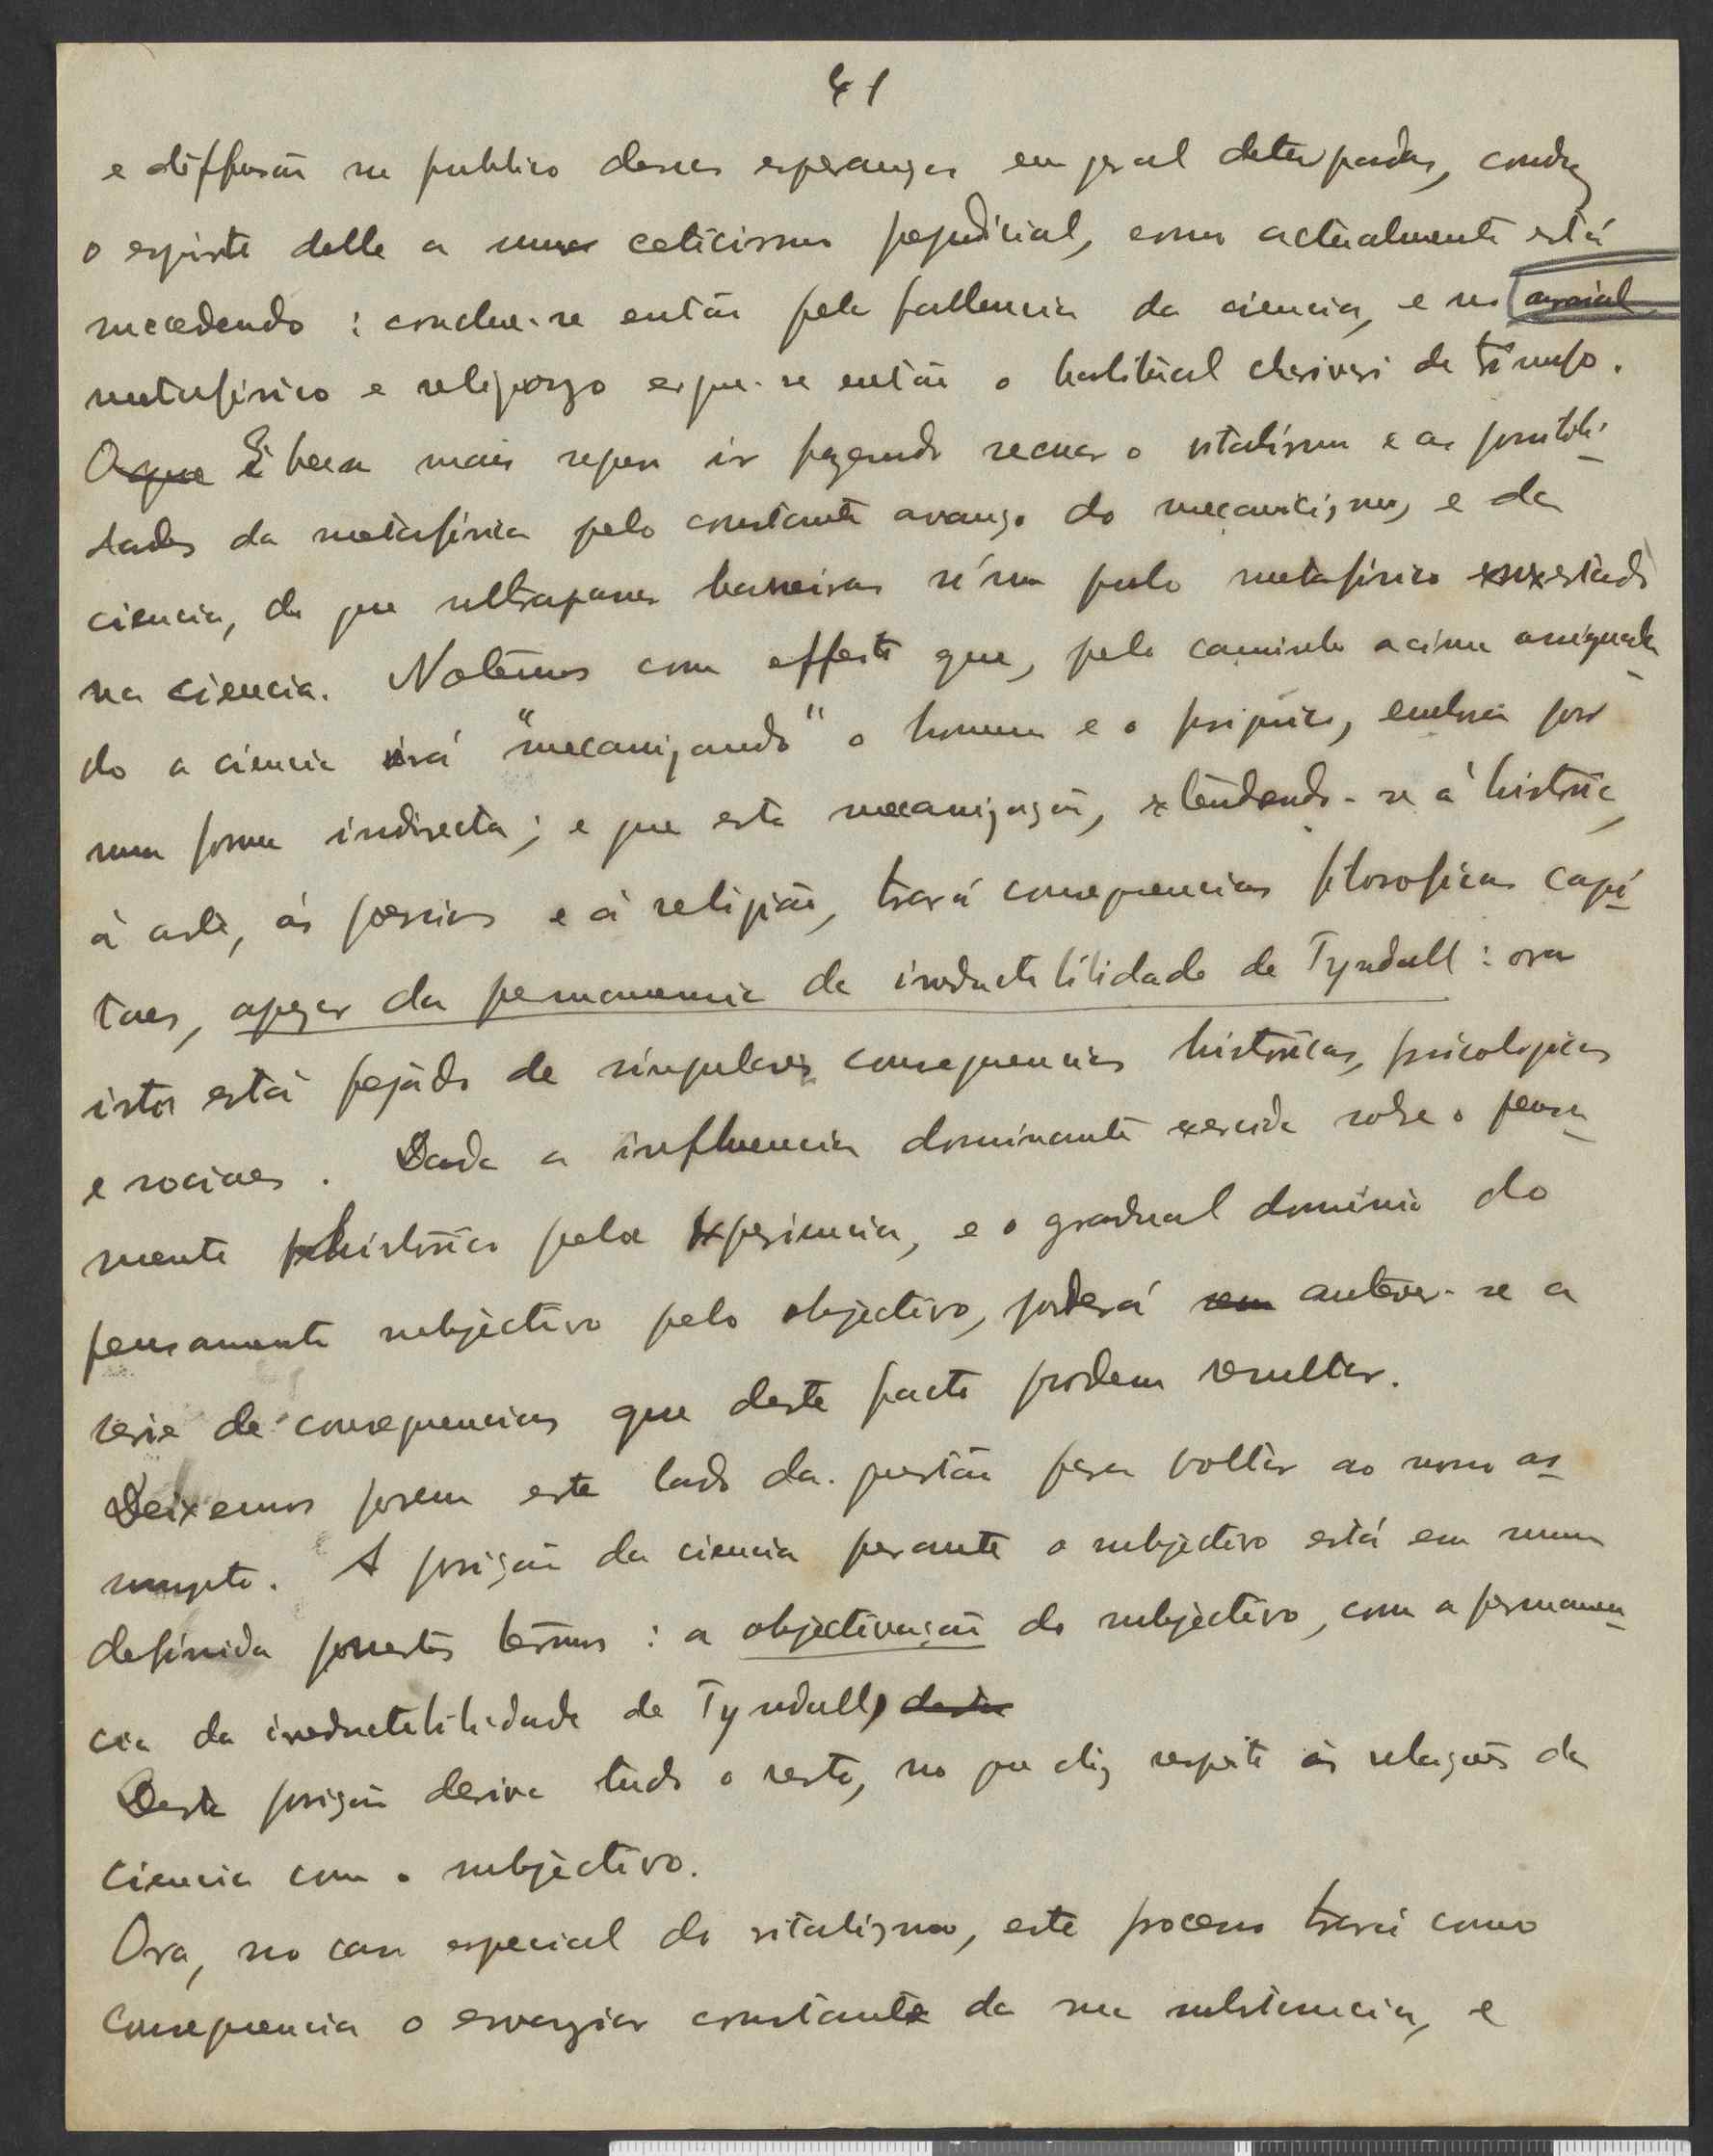 41
e diffusão no publico dessas esperanças em geral deturpadas, conduz
o espirito delle a um ceticismo prejudicial, como actualmente está
succedendo : conclue-se então pela fallencia da ciencia, e no arraial
metafisico e religiozo ergue-se então o habitual charivari de triunfo.
O que É bem mais seguro ir fazendo recuar o vitalismo e as possibili-
dades da metafisica pelo constante avanço do mecanicismo, e da
ciencia, do que ultrapassar barreiras n'um pulo metafisico enxertado
na ciencia. Notemos com effeito que, pelo caminho acima assignala-
do a ciencia irá "mecanizando" o homem e o psiquico, embora por
uma forma indirecta ; e que esta mecanização, extendendo-se á historia,
á arte, ás poesias e á religião, trará consequencias filosoficas capi-
taes, apezar da permanencia da irreductibilidade de Tyndall : ora
isto está pejado de singulares consequencias historicas, psicologicas
e sociaes. Dada a influencia dominante exercida sobre o pensa-
mento historico pela experiencia, e o gradual dominio do
pensamento subjectivo pelo objectivo, poderá antever-se a
serie de consequencias que deste facto podem resultar.
Deixemos porem este lado da questão para voltar ao nosso as-
sumpto. A posição da ciencia perante o subjectivo está em summa
definida por estes termos : a objectivação do subjectivo, com a permanen-
cia da irreductibilidade de Tyndall, desta
Desta posição deriva tudo o resto, no que diz respeito ás relações da
ciencia com o subjectivo.
Ora, no caso especial do vitalismo, este processo trará como
consequencia o esvaziar constante da sua substancia, e